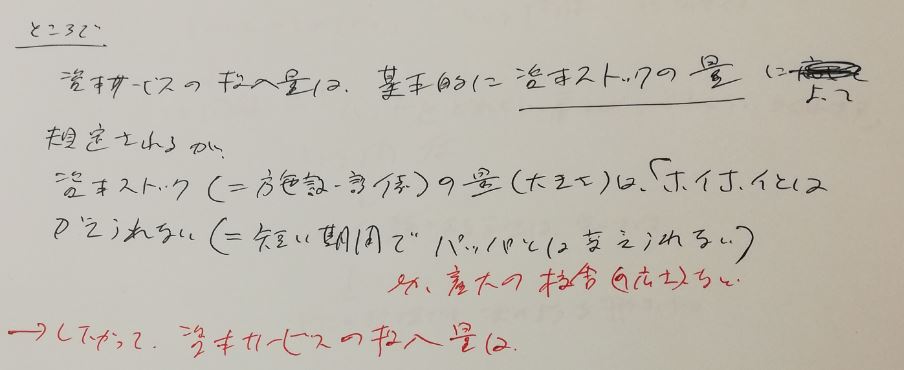 ところで
資本サービスの投入量は、基本的に資本ストックの量によって
規定されるが、
資本ストック(=施設・設備)の量(大きさ)は、「ホイホイとは
かえられない(=短い期間でパッパとは変えられない)
ex. 産大の校舎の広さなど
→したがって、資本サービスの投入量は、